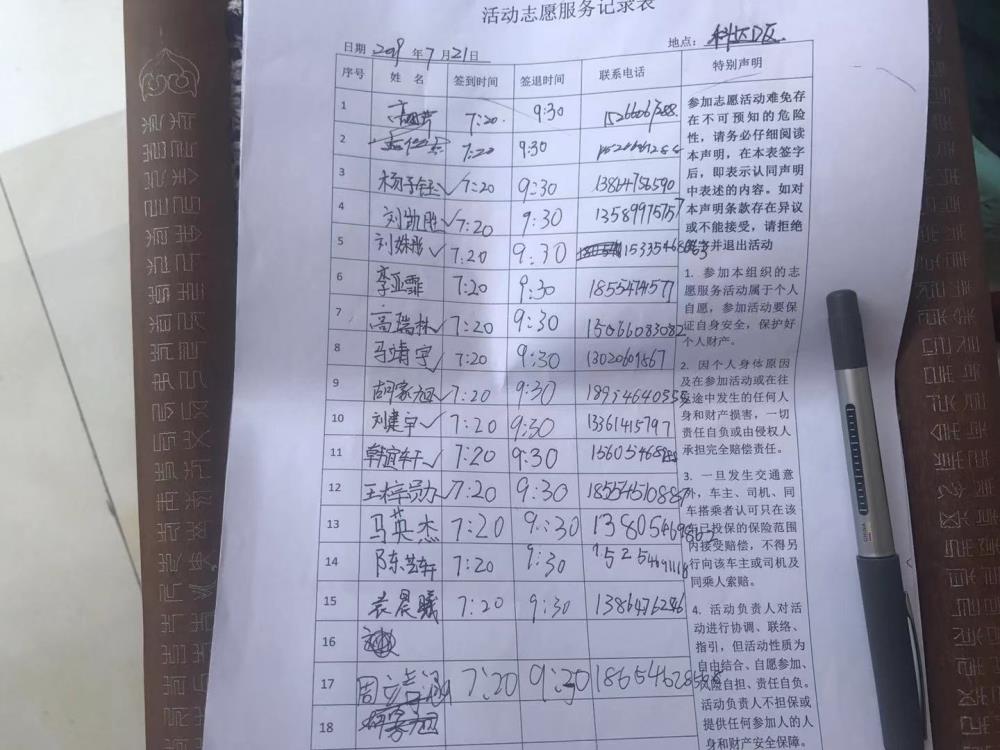 活动志愿服务记录表
日期 2019 年 7 月 21 日
地点：
序号 姓 名 签到时间 签退时间 联系电话 特别声明
1 7:20. 9:30
2 7:20 9:30
3 杨子钰 ✓ 7:20 9:30 13864756590
4 刘凯胜 ✓ 7:20 9:30 13589975757
5 刘姝彤 ✓ 7:20 9:30
6 李亚霏 7:20 9:30 1855474577
7 高瑞林 ✓ 7:20 9:30 15066083082
8 马靖宇 ✓ 7:20 9:30 13020601567
9 胡家旭 ✓ 7:20 9:30
10 刘建宇 ✓ 7:20 9:30 13361415797
11 ✓ 7:20 9:30
12 ✓ 7:20 9:30
13 马英杰 7:20 9:30
14 陈芝轩 7:20 9:30
15 袁晨曦 7:20 9:30 1386476246
16
17 周立 7:20 9:30
18
参加志愿活动难免存
在不可预知的危险
性，请务必仔细阅读
本声明，在本表签字
后，即表示认同声明
中表述的内容。如对
本声明条款存在异议
或不能接受，请拒绝
签字并退出活动
1. 参加本组织的志
愿服务活动属于个人
自愿，参加活动要保
证自身安全，保护好
个人财产。
2. 因个人身体原因
及在参加活动或在往
返途中发生的任何人
身和财产损害，一切
责任自负或由侵权人
承担完全赔偿责任。
3. 一旦发生交通意
外，车主、司机、同
车搭乘者认可只在该
车已投保的保险范围
内接受赔偿，不得另
行向该车主或司机及
同乘人索赔。
4. 活动负责人对活
动进行协调、联络、
指引，但活动性质为
自由结合、自愿参加、
风险自担、责任自负。
活动负责人不担保或
提供任何参加人的人
身和财产安全保障。